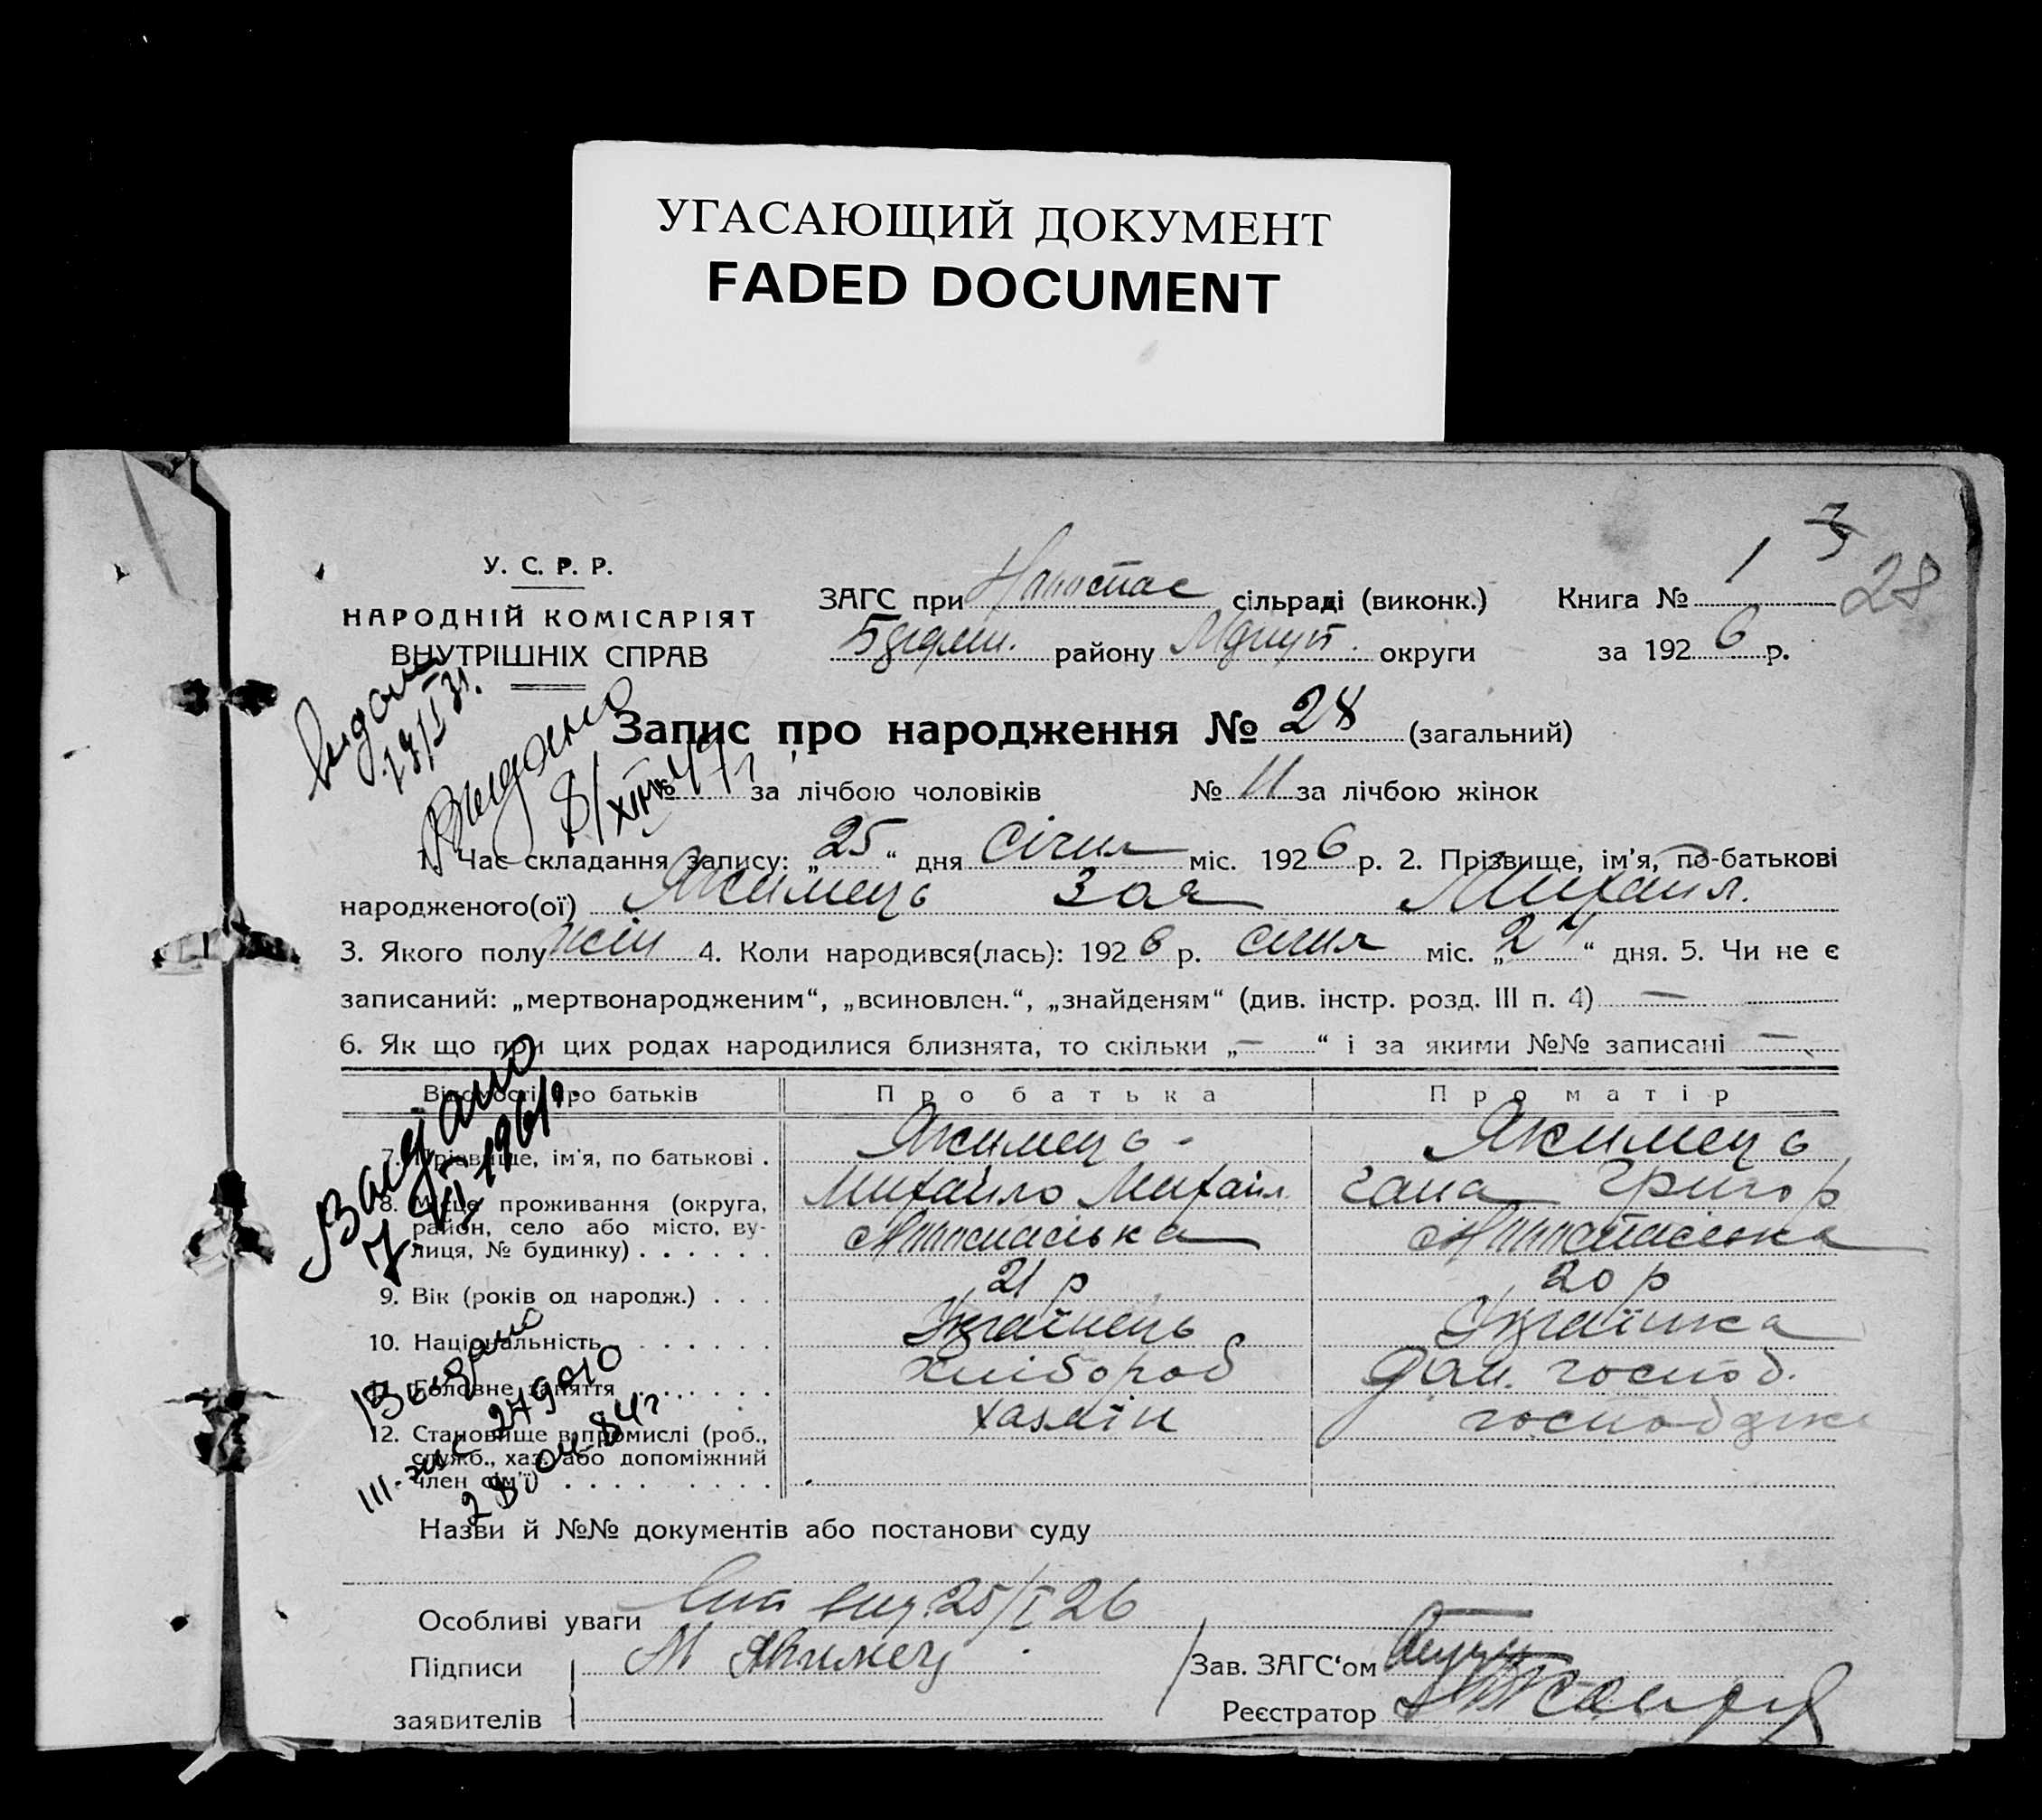 УГАСАЮЩИЙ ДОКУМЕНТ
FADED DOCUMENT
У. С. Р. Р.
НАРОДНІЙ КОМІСАРІЯТ
ВНУТРІШНІХ СПРАВ
ЗАГС при сільраді (виконк.)
району округи
Книга № 1
28
за 1926 р.
Видано
Видано
8/XII 47 г
Запис про народження № 28 (загальний)
№ за лічбою чоловіків № 11 за лічбою жінок
1. Час складання запису: „25“ дня Січня міс. 1926 р. 2. Прізвище, ім'я, по-батькові
народженого(ої) Якимець Зоя Михайл.
3. Якого полу жін 4. Коли народився(лась): 1926 р. січня міс. „24“ дня. 5. Чи не є
записаний: „мертвонародженим“, „всиновлен.“, „знайденям“ (див. інстр. розд. III п. 4) —
6. Як що при цих родах народилися близнята, то скільки „—“ і за якими №№ записані —
Відомості про батьків Про батька Про матір
7. Прізвище, ім'я, по батькові . Якимець - Михайло Михайл. Якимець Гана Григор
8. Місце проживання (округа,
район, село або місто, ву-
лиця, № будинку) . . . . . .
9. Вік (років од народж.) . . . 21 р 20 р
10. Національність . . . . . . Українець Українка
11. Головне заняття . . . . . . Хлібороб Дом. господ.
12. Становище в промислі (роб.,
служб., хаз. або допоміжний
член сім'ї) . . . . . . . . . хазяїн
Видано
1961 р.
Видано
279010
28 04-84 г
Назви й №№ документів або постанови суду
Особливі уваги 25/I 26
Підписи
заявителів
М Якимец
Зав. ЗАГС‘ом
Реєстратор